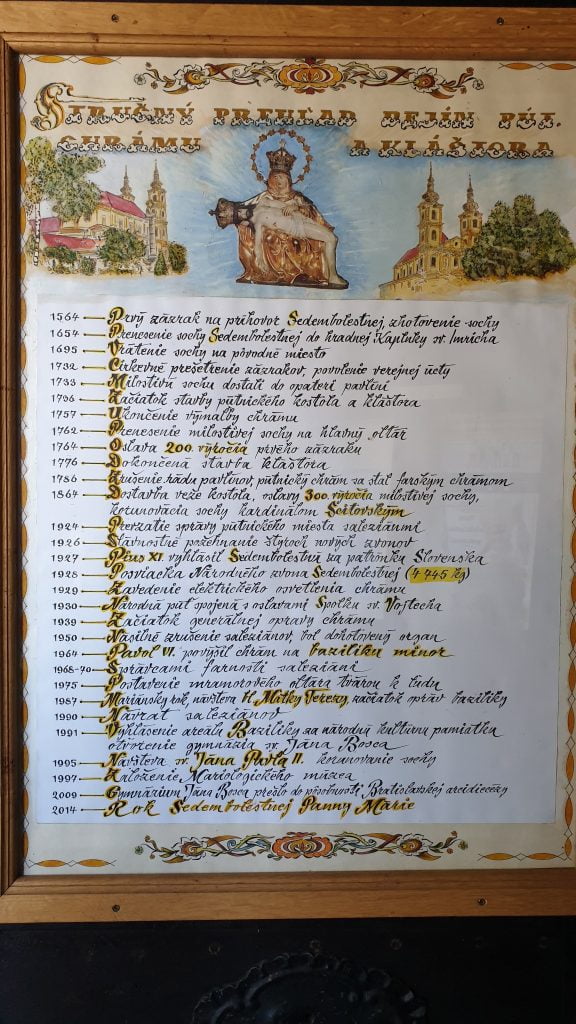 STRUČNÝ PREHĽAD DEJÍN PÚT.
CHRÁMU A KLÁŠTORA
1564 — Prvý zázrak na príhovor Sedembolestnej, zhotovenie sochy
1654 — Prenesenie sochy Sedembolestnej do hradnej Kaplnky sv. Imricha
1695 — Vrátenie sochy na pôvodné miesto
1732 — Cirkevné prešetrenie zázrakov, povolenie verejnej úcty
1733 — Milostivú sochu dostali do opatery pavlíni
1736 — Začiatok stavby pútnického kostola a kláštora
1757 — Ukončenie výmaľby chrámu
1762 — Prenesenie milostivej sochy na hlavný oltár
1764 — Oslava 200. výročia prvého zázraku
1776 — Dokončená stavba kláštora
1786 — Zrušenie rádu pavlínov, pútnický chrám sa stal farským chrámom
1864 — Dostavba veže kostola, oslavy 300. výročia milostivej sochy,
korunovácia sochy kardinálom Scitovským
1924 — Prevzatie správy pútnického miesta saleziánmi
1926 — Slávnostné požehnanie štyroch nových zvonov
1927 — Pius XI. vyhlásil Sedembolestnú za patrónku Slovenska
1928 — Posviacka Národného zvona Sedembolestnej (4 745 kg)
1929 — Zavedenie elektrického osvetlenia chrámu
1930 — Národná púť spojená s oslavami Spolku sv. Vojtecha
1939 — Začiatok generálnej opravy chrámu
1950 — Násilné zrušenie saleziánov, bol dohotovený organ
1964 — Pavol VI. povýšil chrám na baziliku minor
1968-70 — Správcami farnosti saleziáni
1975 — Postavenie mramorového oltára tvárou k ľudu
1987 — Mariánsky rok, návšteva M. Matky Terezy, začiatok opráv baziliky
1990 — Návrat saleziánov
1991 — Vyhlásenie areálu Baziliky za národnú kultúrnu pamiatku
otvorenie gymnázia sv. Jána Bosca
1995 — Návšteva sv. Jána Pavla II. korunovanie sochy
1997 — Založenie Mariologického múzea
2009 — Gymnázium Jána Bosca prešlo do pôsobnosti Bratislavskej arcidiecézy
2014 — Rok Sedembolestnej Panny Márie